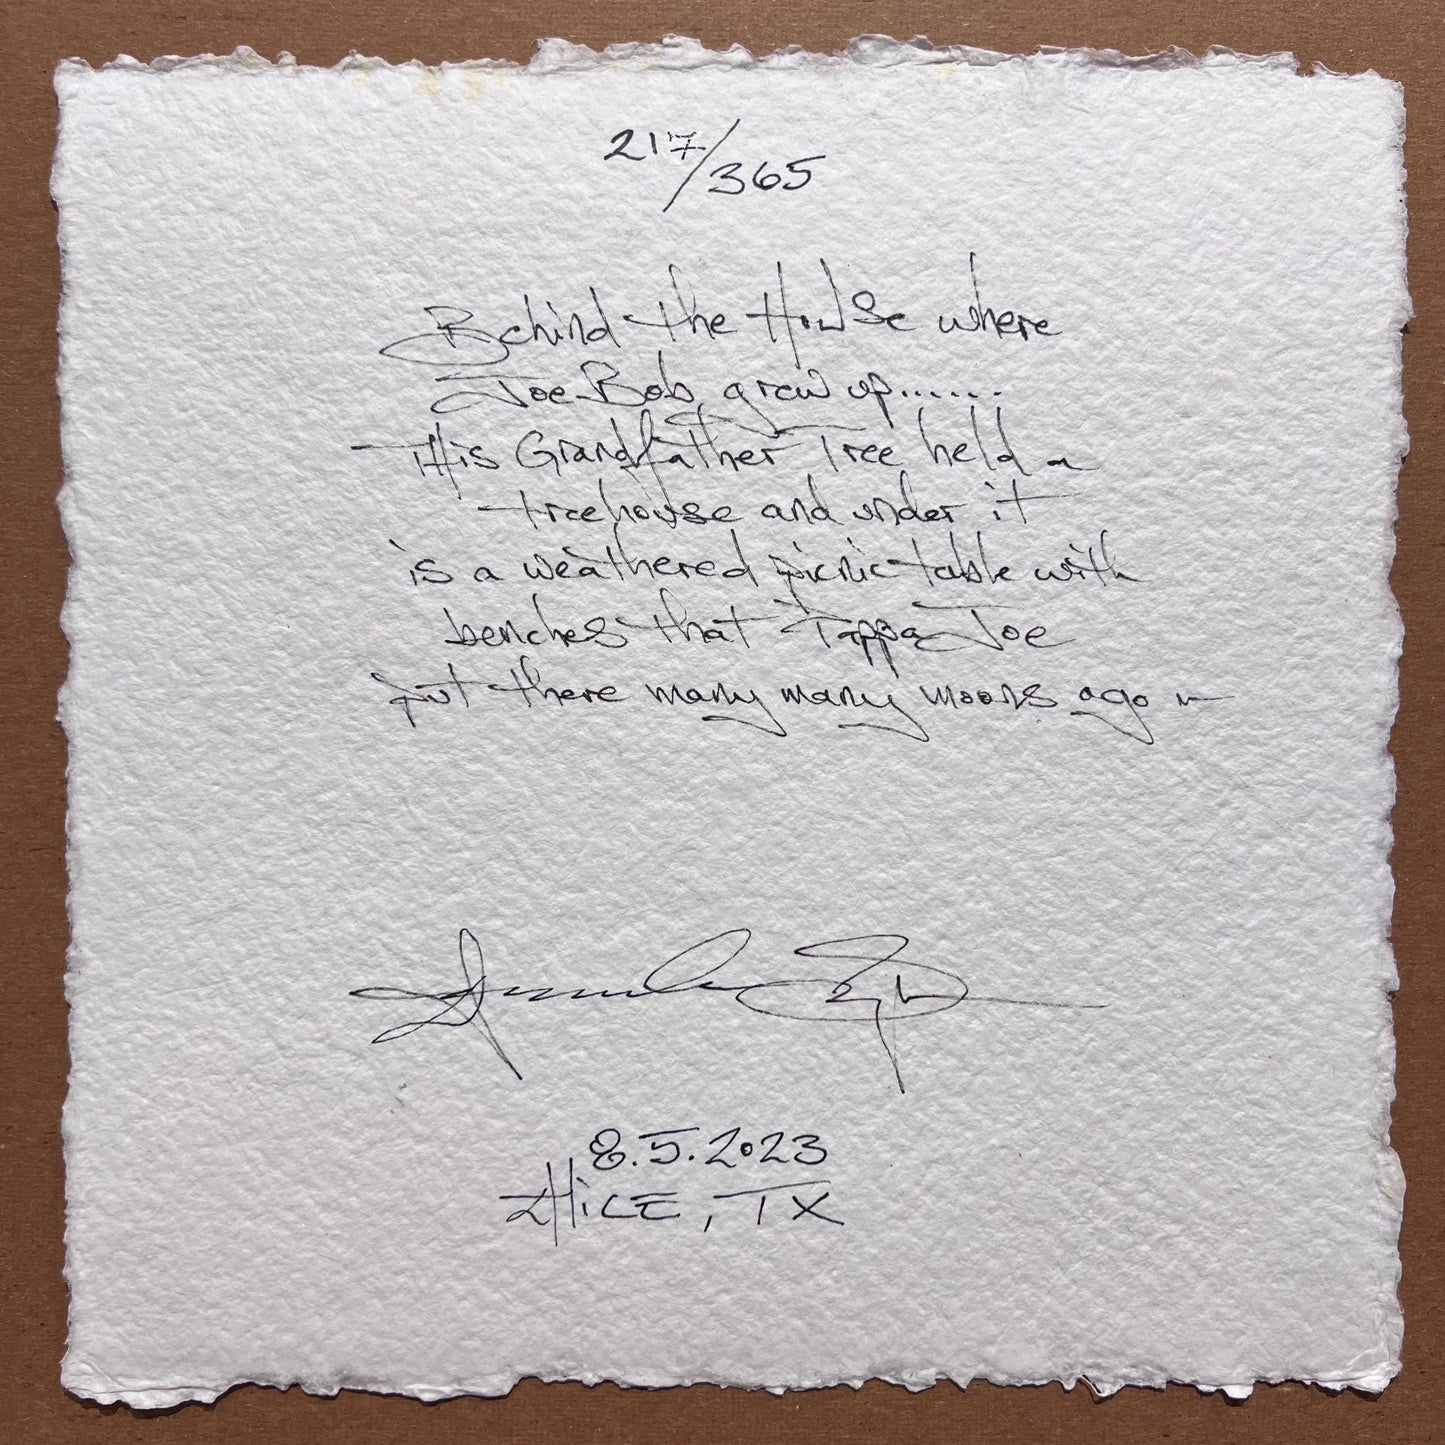 217/365
Behind the House where
Joe Bob grew up......
This Grandfather Tree held a
treehouse and under it
is a weathered picnic table with
benches that Pappa Joe
put there many many moons ago
8.5.2023
Hico, TX